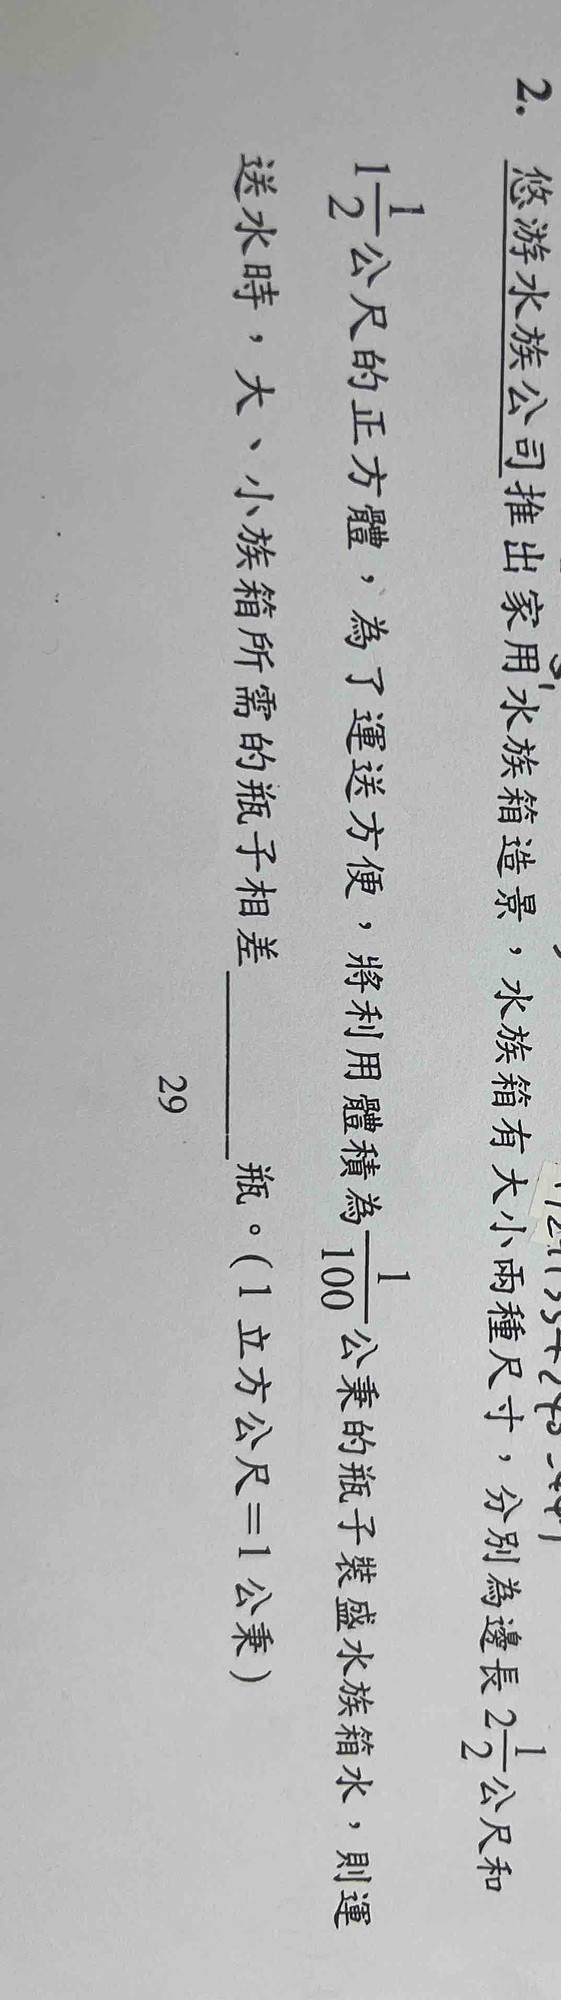 2. 悠游水族公司推出家用水族箱造景，水族箱有大小兩種尺寸，分別為邊長 2 1/2 公尺和
1 1/2 公尺的正方體，為了運送方便，將利用體積為 1/100 公秉的瓶子裝盛水族箱水，則運
送水時，大、小族箱所需的瓶子相差______瓶。(1 立方公尺＝1 公秉)
29